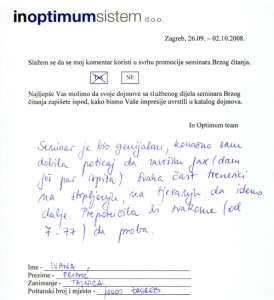 inoptimumsistem d.o.o.
Zagreb, 26.09. – 02.10.2008.
Slažem se da se moj komentar koristi u svrhu promocije seminara Brzog čitanja.
DA NE
Najljepše Vas molimo da svoje dojmove sa službenog dijela seminara Brzog
čitanja zapišete ispod, kako bismo Vaše impresije uvrstili u katalog dojmova.
In Optimum team
Seminar je bio genijalan, konačno sam
dobila poticaj da završim fax (dam
još par ispita). Svaka čast treneru
na strpljenju, na tjeranju da idemo
dalje. Preporučila bi svakome (od
7-77) da proba.
Ime - IVANA,
Prezime -
Zanimanje - TAJNICA
Poštanski broj i mjesto - 10000 ZAGREB